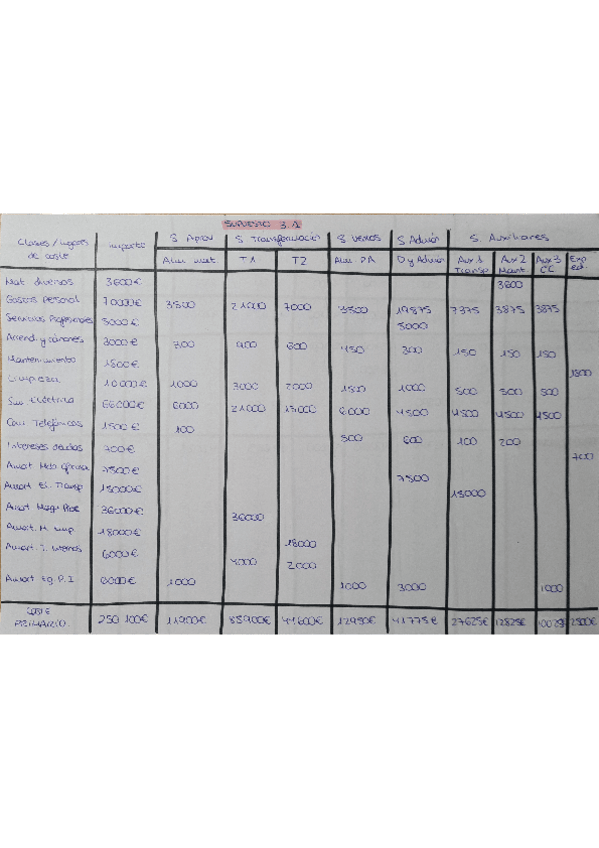 SUPUESTO 3.1
Clases / lugares de coste | Importe | S. Aprov | S. Transformación | S. Ventas | S. Admón | S. Auxiliares
Alm. mat | T1 | T2 | Alm. PA | D y Admón | Aux 1 Transp | Aux 2 Mant | Aux 3 CC | Exp ed.
Mat. diversos 3600€ 3600
Gastos Personal 70000€ 3500 21000 7000 3500 19875 7375 3875 3875
Servicios Profesionales 5000€ 5000
Arrend. y cánones 3000€ 300 900 600 450 300 150 150 150
Mantenimiento 1800€ 1800
Limpieza 10000€ 1000 3000 2000 1500 1000 500 500 500
Sum. Eléctrico 66000€ 6000 21000 15000 6000 4500 4500 4500 4500
Com. Telefónicas 1500€ 100 500 600 100 200
Intereses deudas 700€ 700
Amort. Mob. oficina 7500€ 7500
Amort. El. Transp 15000€ 15000
Amort. Maqu. Proc 36000€ 36000
Amort. M. 18000€ 18000
Amort. I. 6000€ 4000 2000
Amort. Eq. P. I 6000€ 1000 1000 3000 1000
COSTE PRIMARIO 250 100€ 11900€ 85900€ 44600€ 12950€ 41775€ 27625€ 12825€ 10025€ 2500€